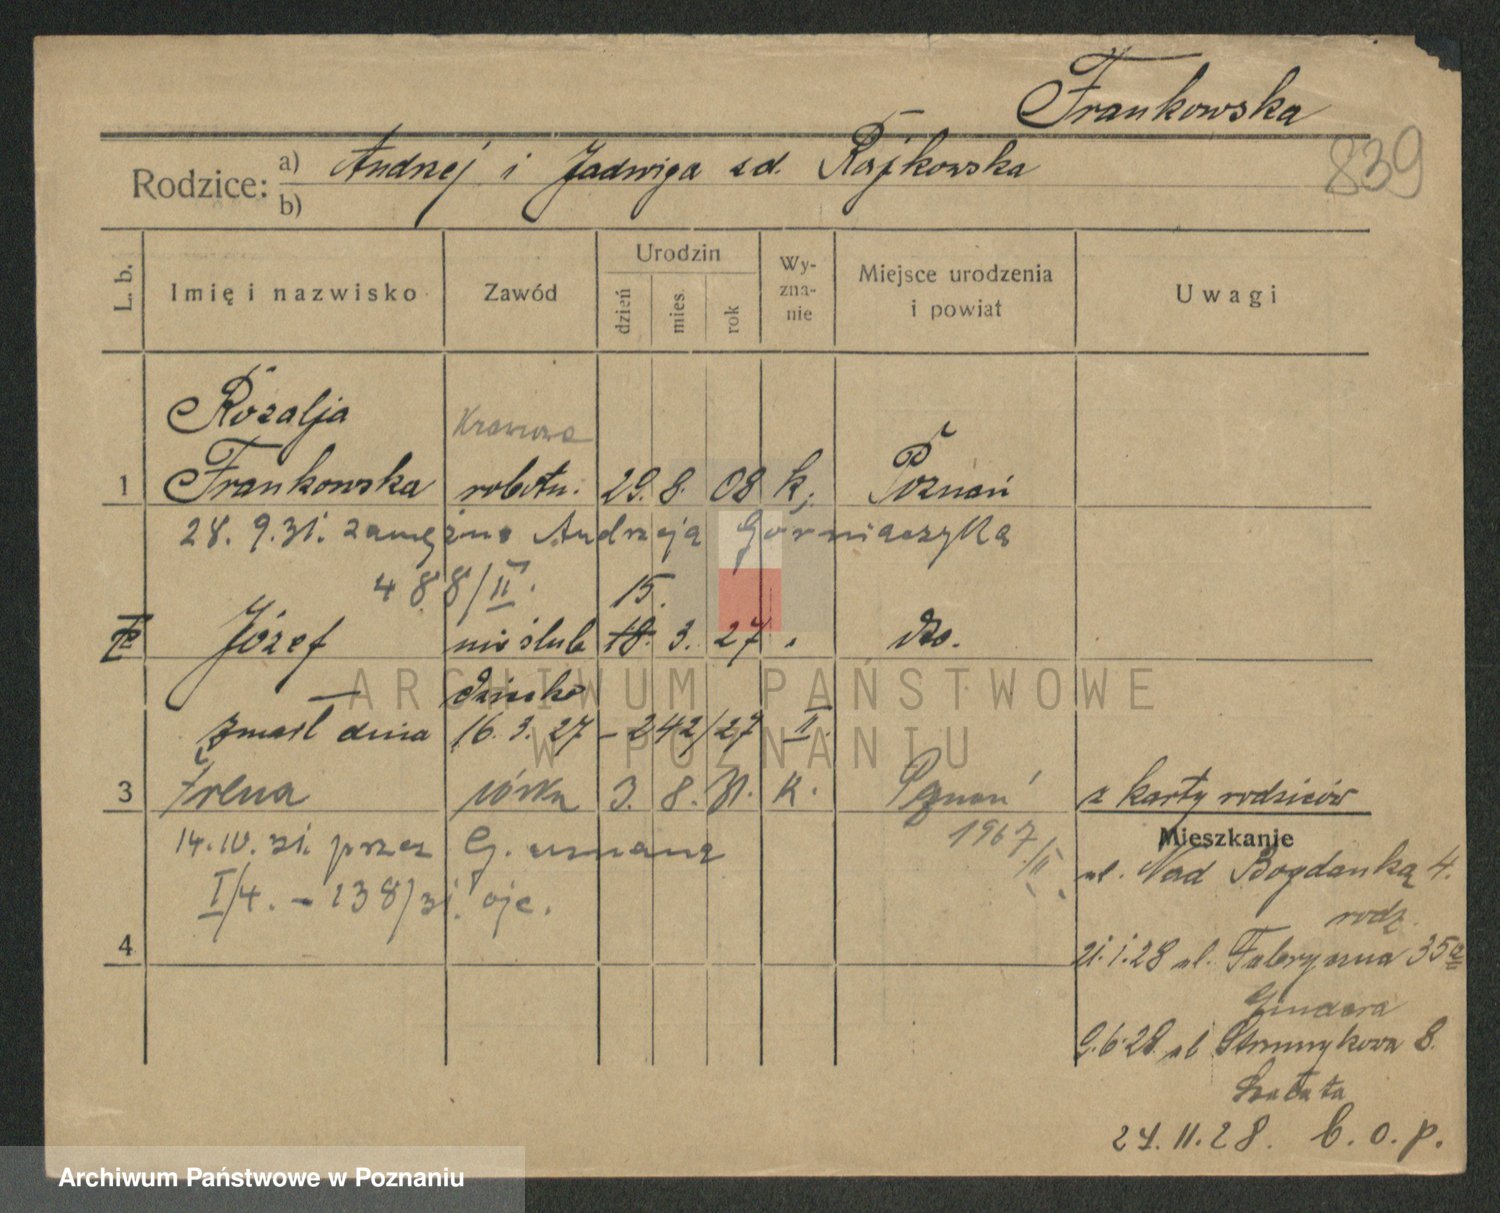 Frankowska
839
Rodzice: a) Andrzej i Jadwiga zd. Rajkowska
b)
L. b. Imię i nazwisko Zawód Urodzin dzień mies. rok Wy-zna-nie Miejsce urodzenia i powiat Uwagi
Rozalja Krawcowa
1 Frankowska robotn. 29. 8. 08 k. Poznań
28. 9. 31. zamężna Andrzeja Górniaczyka
488/II. 15.
Józef nieślub. 18. 3. 27 do.
dziecko
zmarł dnia 16. 3. 27 – 242/27 II.
3 Irena córka 3. 8. 31. K. Poznań z karty rodziców
14. IV. 31. przez G. uznana 1967/II
I/4. – 138/31. ojc.
4
Mieszkanie
ul. Nad Bogdanką 4.
rodz.
21.1.28 ul. Fabryczna 35
9.6.28 ul Strumykowa 8.
27.11.28. b. o. p.
ARCHIWUM PAŃSTWOWE
W POZNANIU
Archiwum Państwowe w Poznaniu